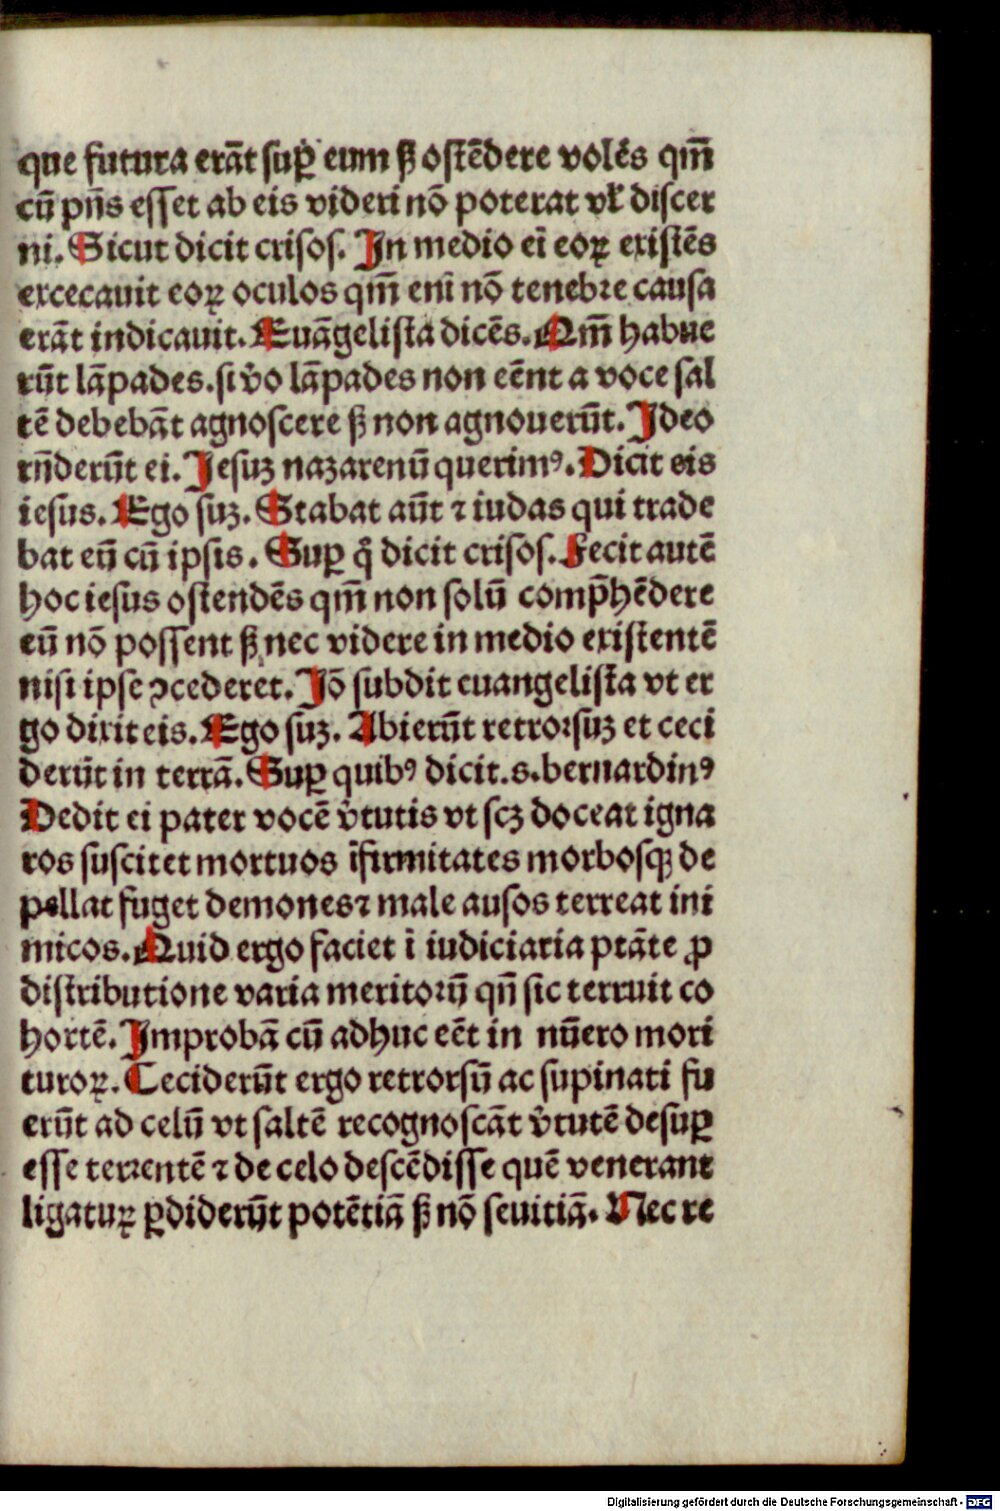 que futura erāt suꝑ eum ſꝫ oſtēdere volēs qm̄
cū pn̄s eſſet ab eis videri nō poterat vł diſcer
ni. Sicut dicit criſoſ. In medio ei eoꝝ exiſtēs
excecauit eoꝝ oculos qm̄ eni nō tenebꝛe cauſa
erāt indicauit. Euāgeliſta dicēs. Qm̄ habue
rūt lāpades. ſi v̾o lāpades non eēnt a voce ſal
tē debebāt agnoſcere ſꝫ non agnouerūt. Ideo
rn̄derūt ei. Jeſuꝫ nazarenū querimꝰ. Dicit eis
ieſus. Ego ſuꝫ. Stabat aūt ⁊ iudas qui trade
bat eū cū ipſis. Suꝑ q̊ dicit criſoſ. Fecit autē
hoc ieſus oſtendēs qm̄ non ſolū comp̄hēdere
eū nō poſſent ſꝫ nec videre in medio exiſtentē
niſi ipſe ꝯcederet. Iō ſubdit euangeliſta vt er
go dixit eis. Ego ſuꝫ. Abierūt retroꝛſuꝫ et ceci
derūt in terrā. Suꝑ quibꝰ dicit. s. bernardinꝰ
Dedit ei pater vocē v̾tutis vt ſcꝫ doceat igna
ros ſuſcitet mortuos īfirmitates morboſqꝫ de
pellat fuget demones⁊ male auſos terreat ini
micos. Quid ergo faciet ī iudiciaria ptāte ꝓ
diſtributione varia meritoꝛū qn̄ ſic terruit co
hortē. Improbā cū adhuc eēt in nūero mori
turoꝝ. Ceciderūt ergo retrorſū ac ſupinati fu
erūt ad celū vt ſaltē recognoſcāt v̾tutē deſuꝑ
eſſe terrentē ⁊ de celo deſcēdiſſe quē venerant
ligatuꝝ ꝑdiderūt potētiā ſꝫ nō ſeuitiā. Nec re
Digitalisierung gefördert durch die Deutsche Forschungsgemeinschaft - DFG